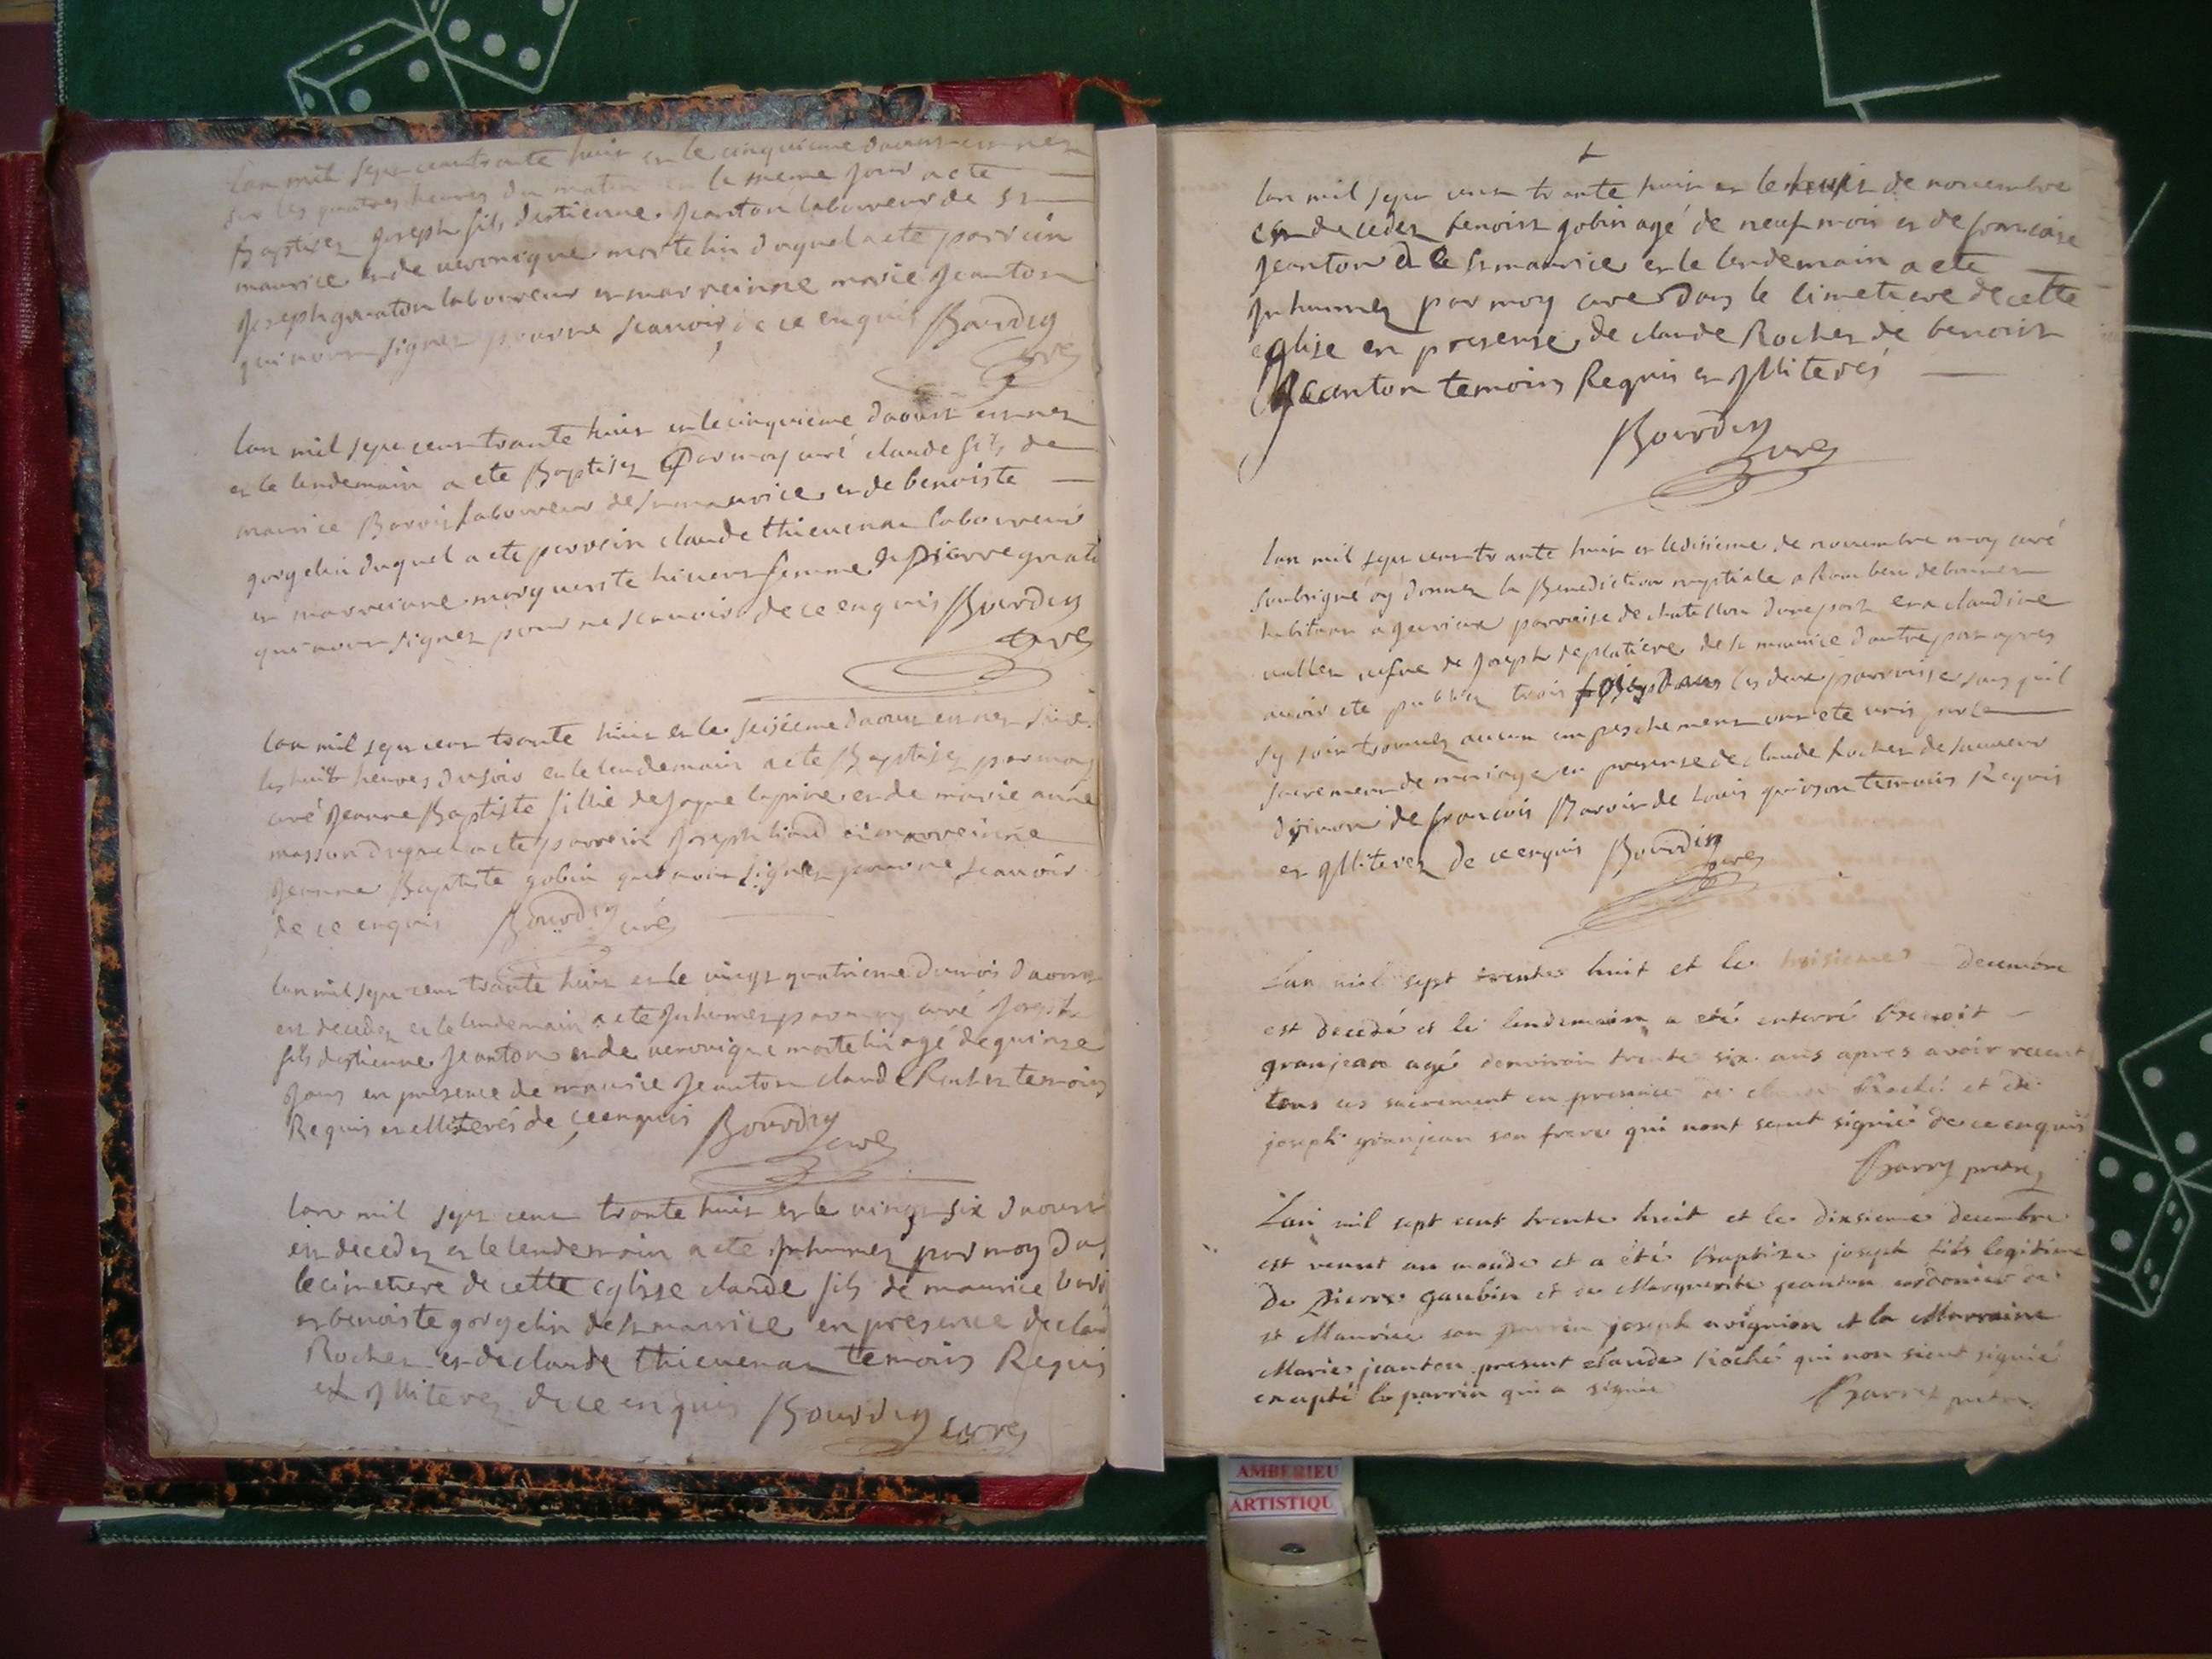 lan mil sept cent trante huit et le cinquieme daoust est nez
sur les quatres heures du matin et le meme jour a ete
Baptisez joseph fils destienne jeanton laboureur de st
maurice et de veronique martelin duquel a ete parrein
joseph laboureur et marreinne marie jeanton
qui nont signez pour ne scauoir de ce enquis Bourdin
curé
lan mil sept cent trante huit et le cinquieme daoust est nez
et le lendemain a ete Baptisez par moy curé claude fils de
maurice laboureur de st maurice et de benoiste
gorgelin duquel a ete parrein claude thieuenan laboureur
et marreinne marguerite femme de pierre
qui nont signez pour ne scauoir de ce enquis Bourdin
curé
lan mil sept cent trante huit et le seisieme daoust est nez sur
les huit heures du soir et le lendemain a ete Baptisez par moy
curé jeanne Baptiste fillie de jaque et de marie anne
masson duquel a ete parrein joseph et marreinne
jeanne Baptiste gobin qui nont signez pour ne scauoir
de ce enquis Bourdin curé
lan mil sept cent trante huit et le vingt quatrieme du mois daoust
est decedez et le lendemain a ete jnhumez par moy curé joseph
fils destienne jeanton et de veronique martelin agé de quinze
jours en presence de maurice jeanton claude Rochez temoins
Requis et illiterés de ce enquis Bourdin
curé
lan mil sept cent trante huit et le vingt six daoust
est decedez et le lendemain a ete jnhumez par moy da
le cimetiere de cette eglise claude fils de maurice
et benoiste gorgelin de st maurice en presence de clau
Rochez et de claude thieuenan temoins Requis
et jlliterez de ce enquis Bourdin curé
lan mil sept cent trante huit et le de nouembre
est decedez benoist gobin agé de neuf mois et de francoise
jeanton de st maurice et le lendemain a ete
jnhumez par moy curé dans le cimetiere de cette
eglise en presense de claude Rochez de benoist
jeanton temoins Requis et jlliterés
Bourdin
curé
lan mil sept cent trante huit et le disieme de nouembre moy curé
soubsigné ay donnez la Benediction nuptiale a
habitant a parroisse de chatillon dune part et a claudine
vefue de joseph de st maurice dautre part apres
auoir ete publiez trois fois dans les deux parroisse sans quil
sy soit trouuez aucun empeschement ont ete unis par le
sacrement de mariage en presense de claude Rochez de
de francois de Louis temoins Requis
et jlliterez de ce enquis Bourdin
curé
Lan mil sept trente huit et le troisieme decembre
est decedé et le lendemain a eté enterré benoit
granjean agé denviron trente six ans apres avoir receut
tous ces sacrement en presence de claude Roché et de
joseph granjean son frere qui nont saut signié de ce enquis
Barry pretre
Lan mil sept cent trente huit et le dixsieme decembre
est venut au monde et a été baptize joseph fils legitime
de Pierre gaubin et de Marguerite jeanton cordonier de
st Maurice son parrin joseph avignion et la Marraine
Marie jeanton present claude Roché qui non sieut signié
excepté le parrin qui a signé Barry pretre
AMBERIEU
ARTISTIQU